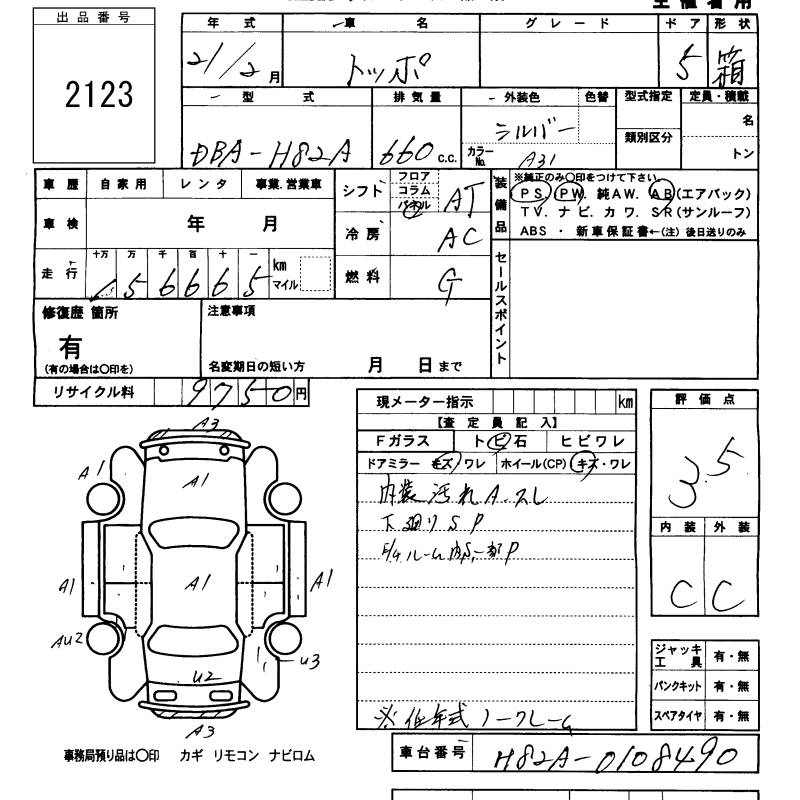 出品番号
2123
年式 車名 グレード ドア 形状
21/2月 トッポ 5 箱
型式 排気量 外装色 色替 型式指定 定員・積載
DBA-H82A 660c.c. シルバー 名
カラーNo. A31 類別区分 トン
車歴 自家用 レンタ 事業.営業車
車検 年 月
走行 十万 万 千 百 十 一 km マイル
156665
シフト フロア コラム パネル AT
冷房 AC
燃料 G
装備品
※純正のみ〇印をつけて下さい。
PS. PW. 純AW. AB(エアバック)
TV. ナビ. カワ. SR(サンルーフ)
ABS ・ 新車保証書←(注) 後日送りのみ
セールスポイント
修復歴 箇所
有
(有の場合は〇印を)
注意事項
名変期日の短い方 月 日まで
リサイクル料 9750円
現メーター指示 km
【査定員記入】
Fガラス トビ石 ヒビワレ
ドアミラー キズ/ワレ ホイール(CP) キズ・ワレ
内装汚れA.スレ
下廻りSP
ルーム内S.一部P
※低年式ノークレーム
評価点
3.5
内装 外装
C C
ジャッキ工具 有・無
パンクキット 有・無
スペアタイヤ 有・無
A3
A1
A1
A1
A1
A1
AU2
U3
U2
A3
事務局預り品は〇印 カギ リモコン ナビロム
車台番号 H82A-0108490